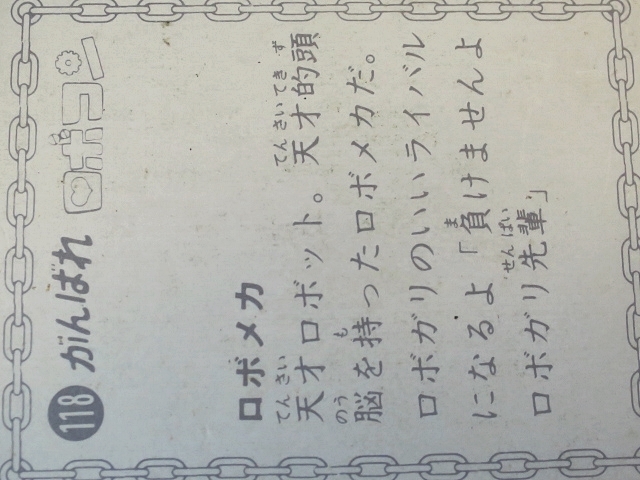 118 がんばれ ロボコン
ロボメカ
天才ロボット。天才的頭
脳を持ったロボメカだ。
ロボガリのいいライバル
になるよ「負けませんよ
ロボガリ先輩」